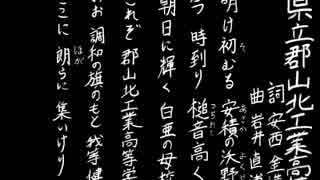 県立郡山北工業高
詞 安西 金
曲 岩井 直
明け初むる 安積の沃野
今 時到り 槌音高く
朝日に輝く 白亜の母校
これぞ 郡山北工業高等学
おお 調和の旗のもと 我等健
ここに 朗らに 集いけり